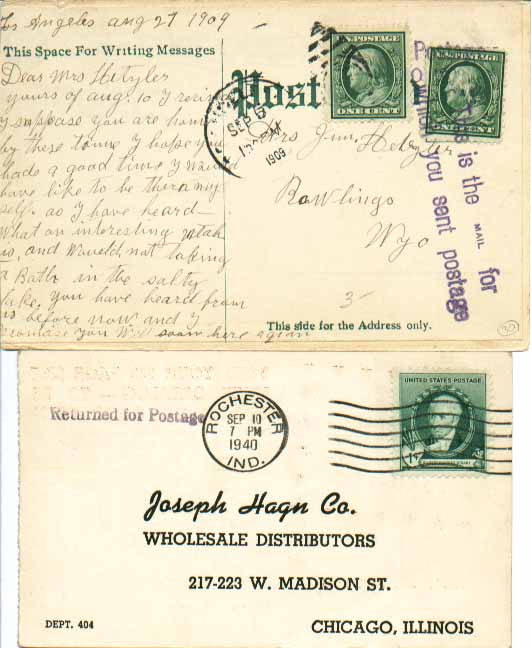 Los Angeles aug 27 1909
This Space For Writing Messages
Dear Mrs
yours of aug. 10 I
I suppose you are home
by these tome I hope you
hade a good time I would
have like to be there my
self. as I have heard
What an interesting
is, and Would not taking
a Bath in the salty
lake, you have heard from
us before now and I
you Will soon here again
Post
SEP 6
1909
U.S. POSTAGE
ONE CENT
U.S. POSTAGE
ONE CENT
This is the MAIL for
which you sent postage
Mrs Jim
Rawlings
Wyo
3-
This side for the Address only.
30
Returned for Postage
ROCHESTER
SEP 10
7 PM
1940
IND.
UNITED STATES POSTAGE
Joseph Hagn Co.
WHOLESALE DISTRIBUTORS
217-223 W. MADISON ST.
DEPT. 404
CHICAGO, ILLINOIS